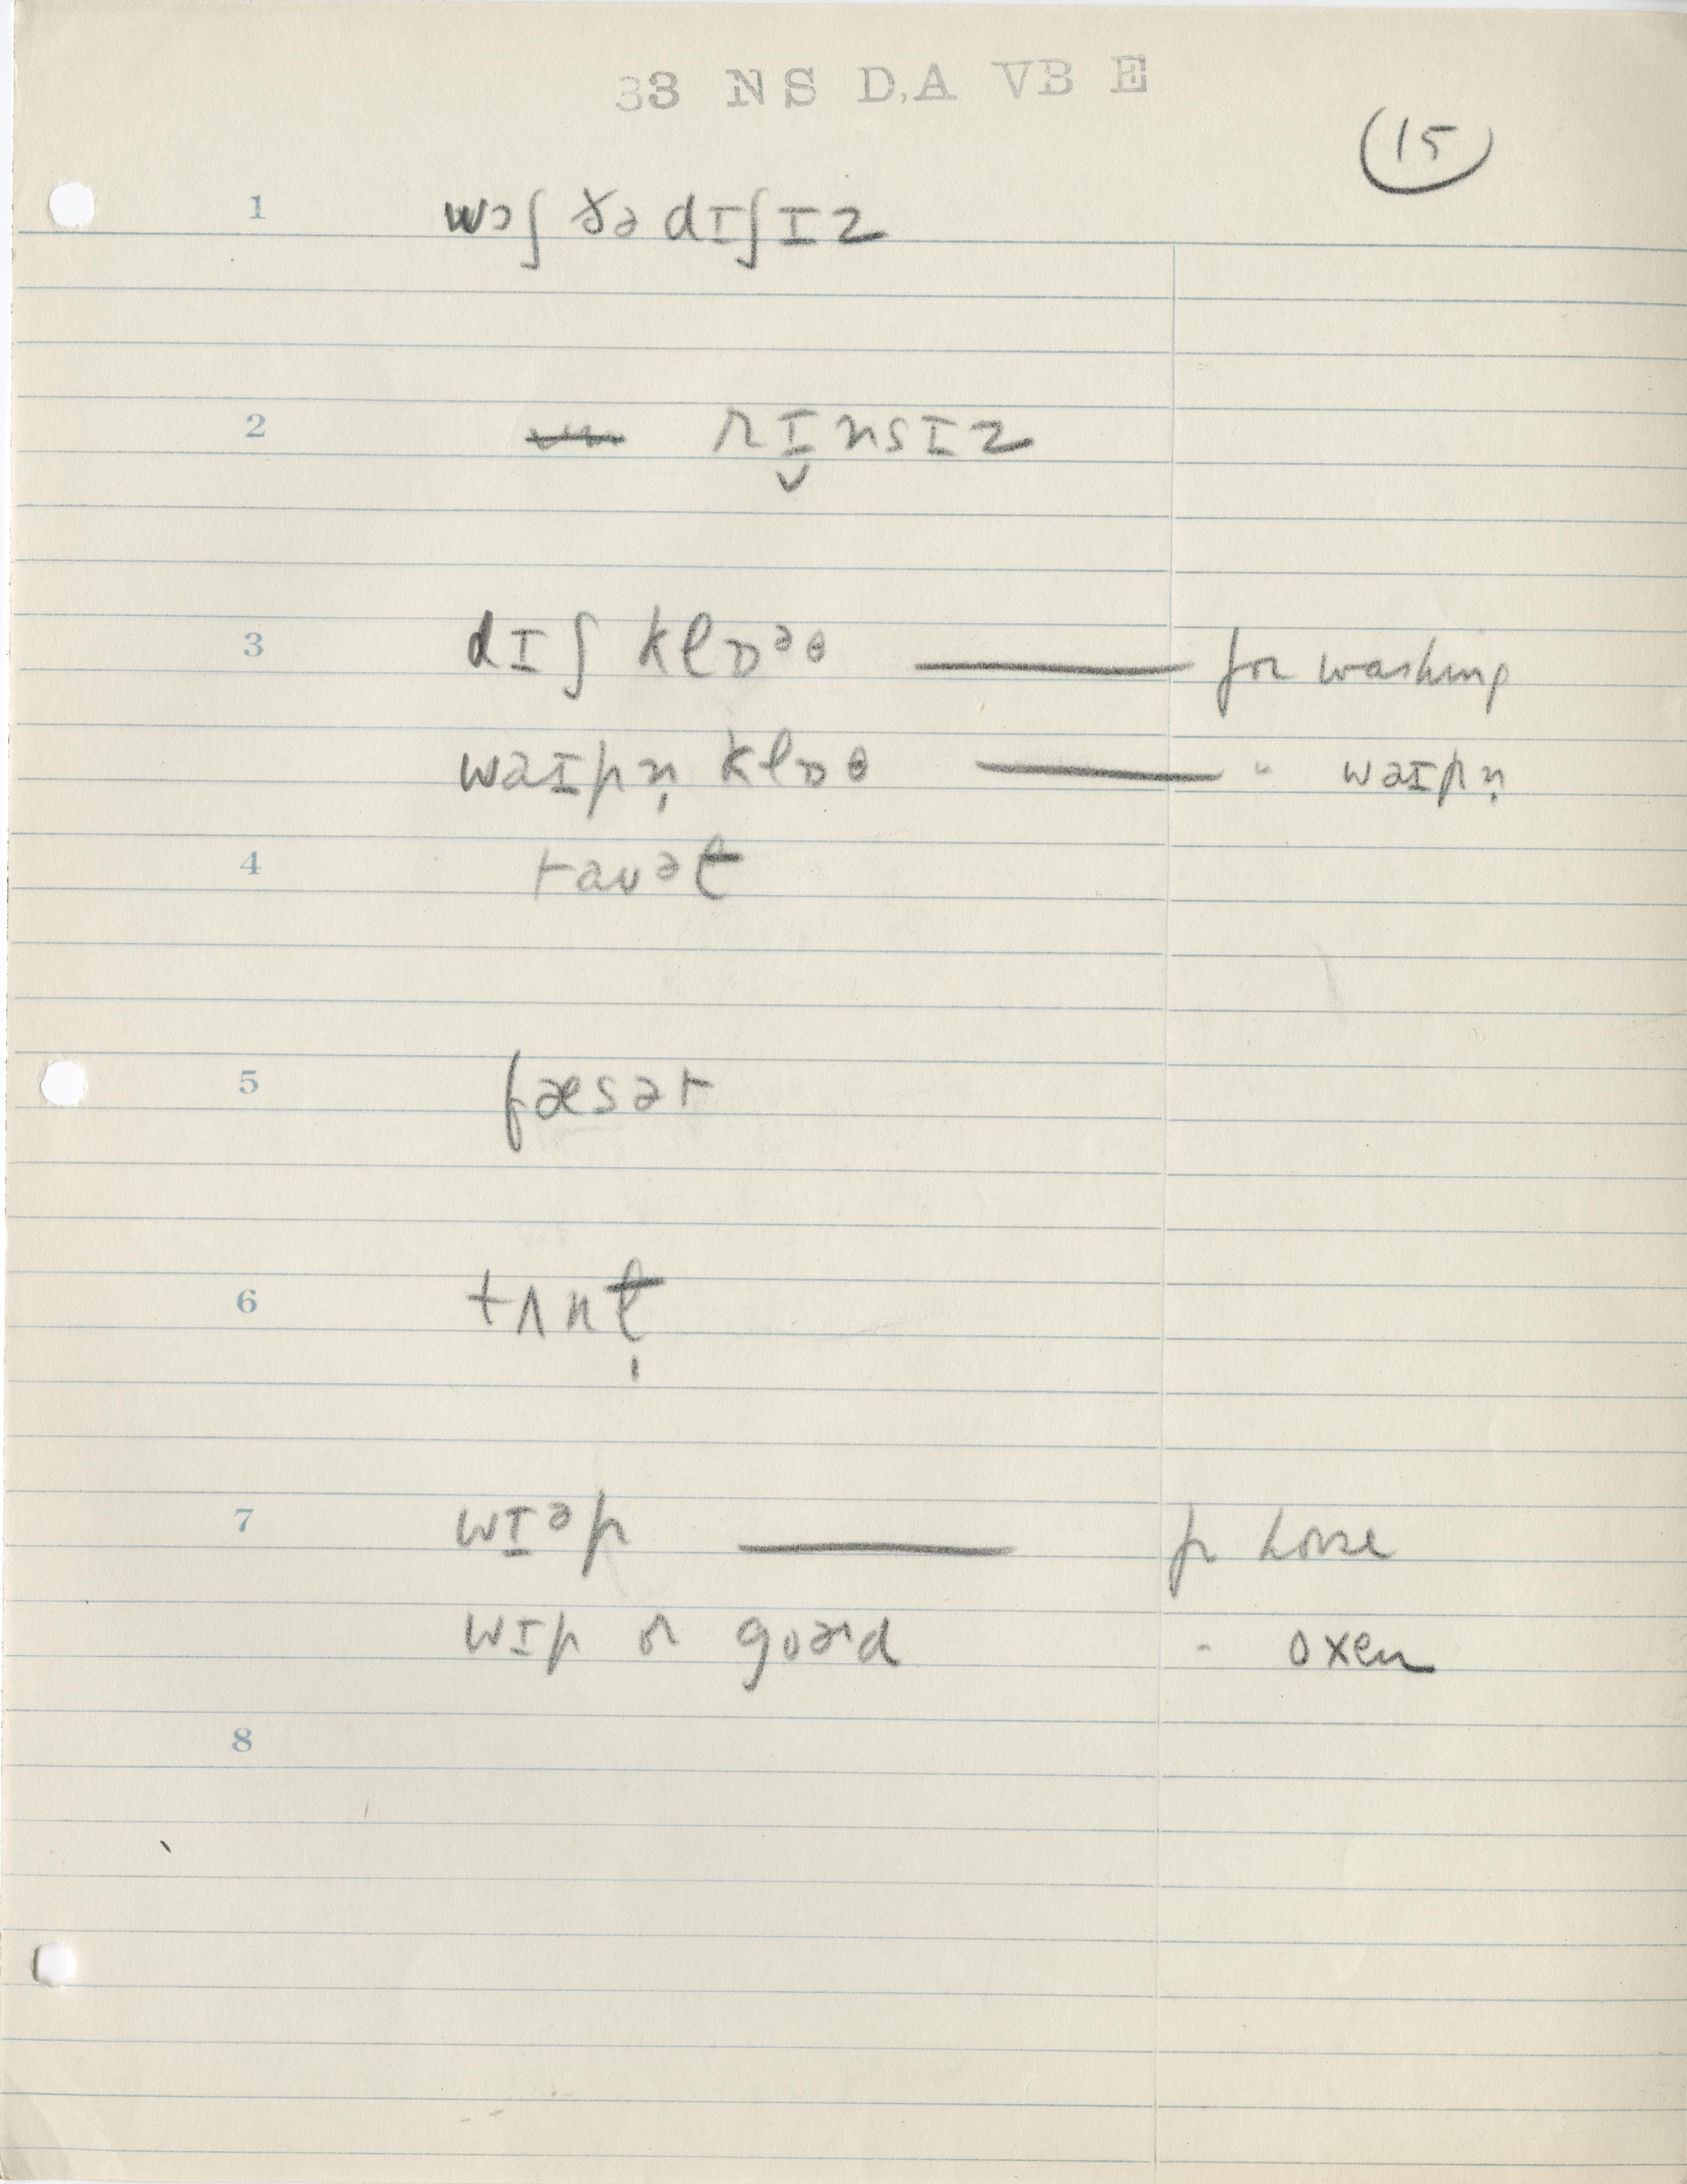 33 NS D,A VB E
15
1 wɔʃ ðə dɪʃɪz
2 rɪ̬nsɪz
3 dɪʃ klɒᵊθ — for washing
waɪpn̩ klɒθ — " waɪpn̩
4 taʊəɫ
5 fæsət
6 tʌnɫ̩
7 wɪᵊp — for horse
wɪp or goəd " oxen
8